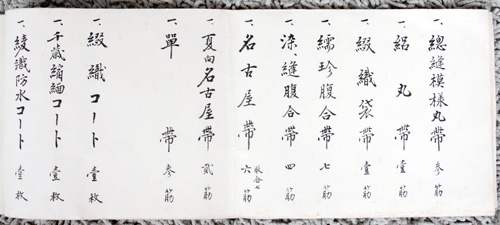 一、總縫模様丸帶 参筋
一、絽丸帶 壹筋
一、綴織袋帶 壹筋
一、繻珍腹合帶 七筋
一、染、縫腹合帶 四筋
一、名古屋帶 六筋
一、夏向名古屋帶 貳筋
一、單帶 参筋
一、綴織コート 壹枚
一、千歳縮緬コート 壹枚
一、綾織防水コート 壹枚